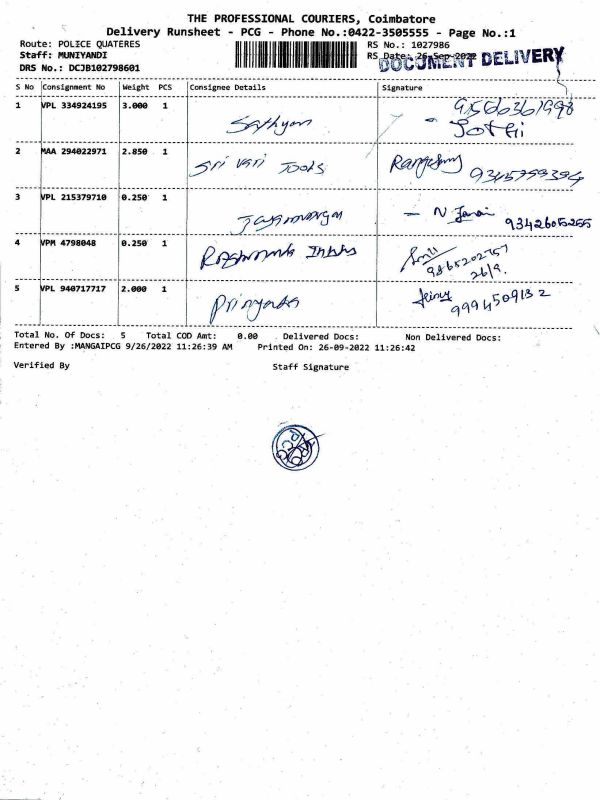 THE PROFESSIONAL COURIERS, Coimbatore
Delivery Runsheet - PCG - Phone No.:0422-3505555 - Page No.:1
Route: POLICE QUATERES RS No.: 1027986
Staff: MUNIYANDI RS Date: 26-Sep-2022
DOCUMENT DELIVERY
DRS No.: DCJB102798601
S No Consignment No Weight PCS Consignee Details Signature
1 VPL 334924195 3.000 1 Sathyan
Jothi
2 MAA 294022971 2.850 1 Sri Vari Tools 9345799394
3 VPL 215379710 0.250 1 N 9342605255
4 VPM 4798048 0.250 1
9865202757
26/9.
5 VPL 940717717 2.000 1 Priyanka 9994509132
Total No. Of Docs: 5 Total COD Amt: 0.00 Delivered Docs: Non Delivered Docs:
Entered By :MANGAIPCG 9/26/2022 11:26:39 AM Printed On: 26-09-2022 11:26:42
Verified By Staff Signature